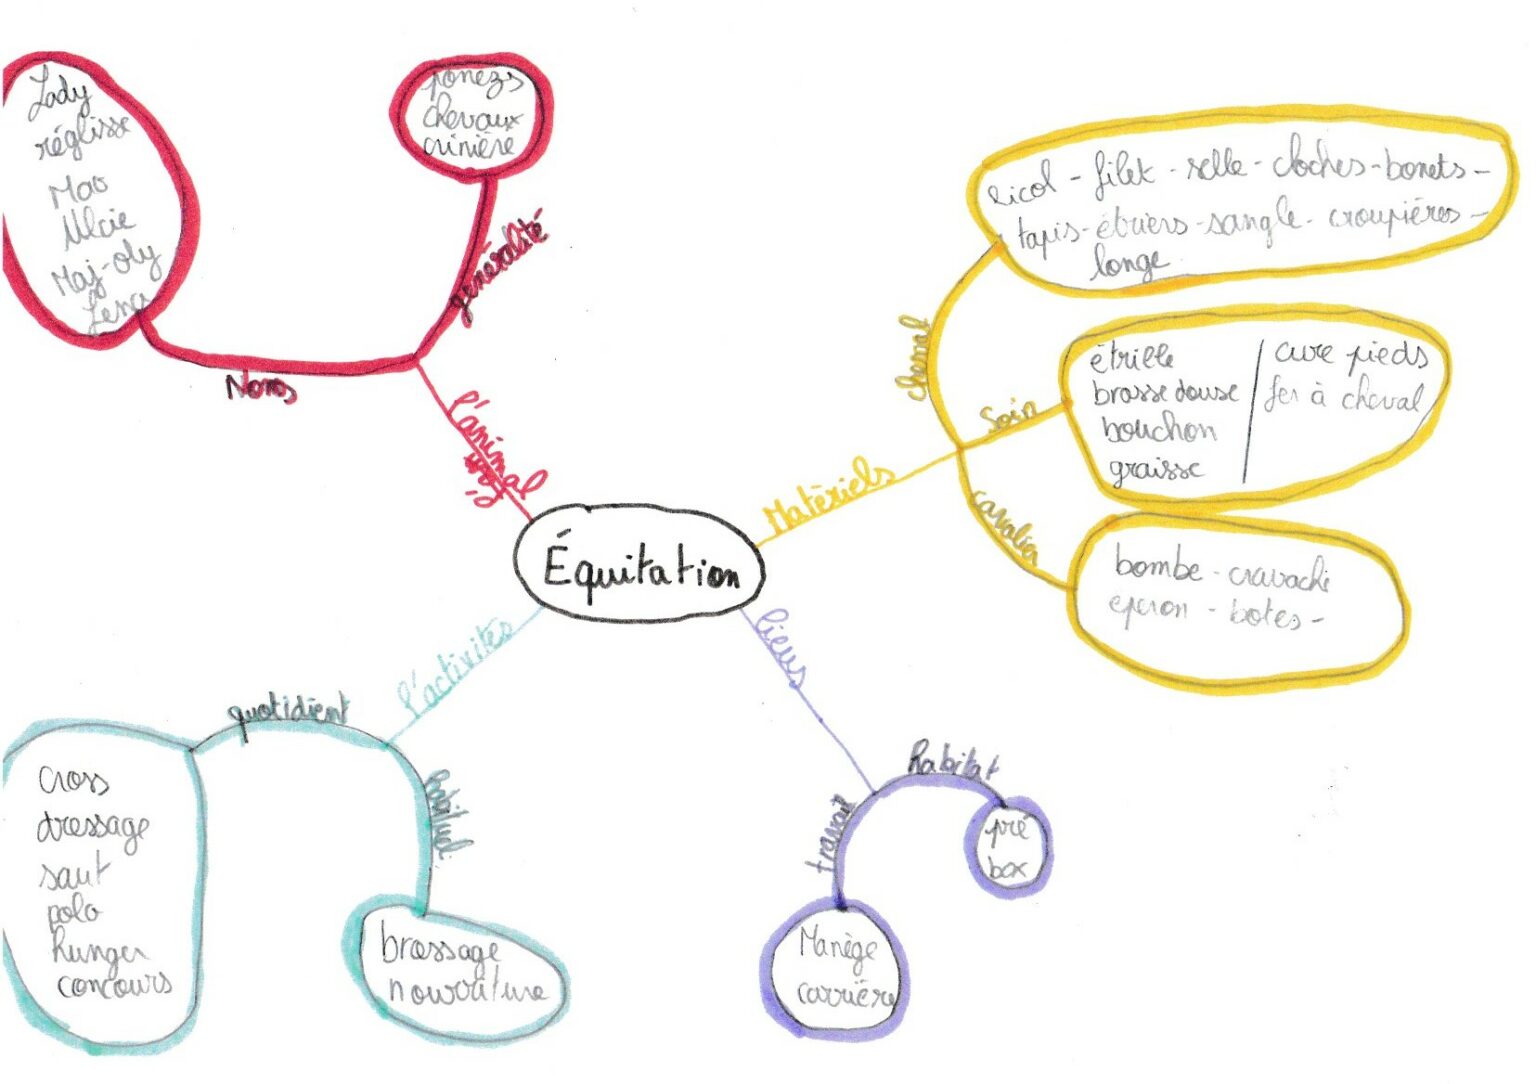 Équitation
l'animal
Noms
Lady
réglisse
Mao
Maj-oly
Lena
généralité
poneys
chevaux
crinière
Matèriels
cheval
licol - filet - selle - cloches - bonets -
tapis - étriers - sangle - croupières -
longe
Soin
étrille
brosse douse
bouchon
graisse
cure pieds
fer à cheval
cavalier
bombe - cravache
eperon - botes -
l'activités
quotidient
cross
dressage
saut
polo
hunger
concours
habituel
brossage
nourriture
lieus
habitat
pré
box
travail
Manège
carrière